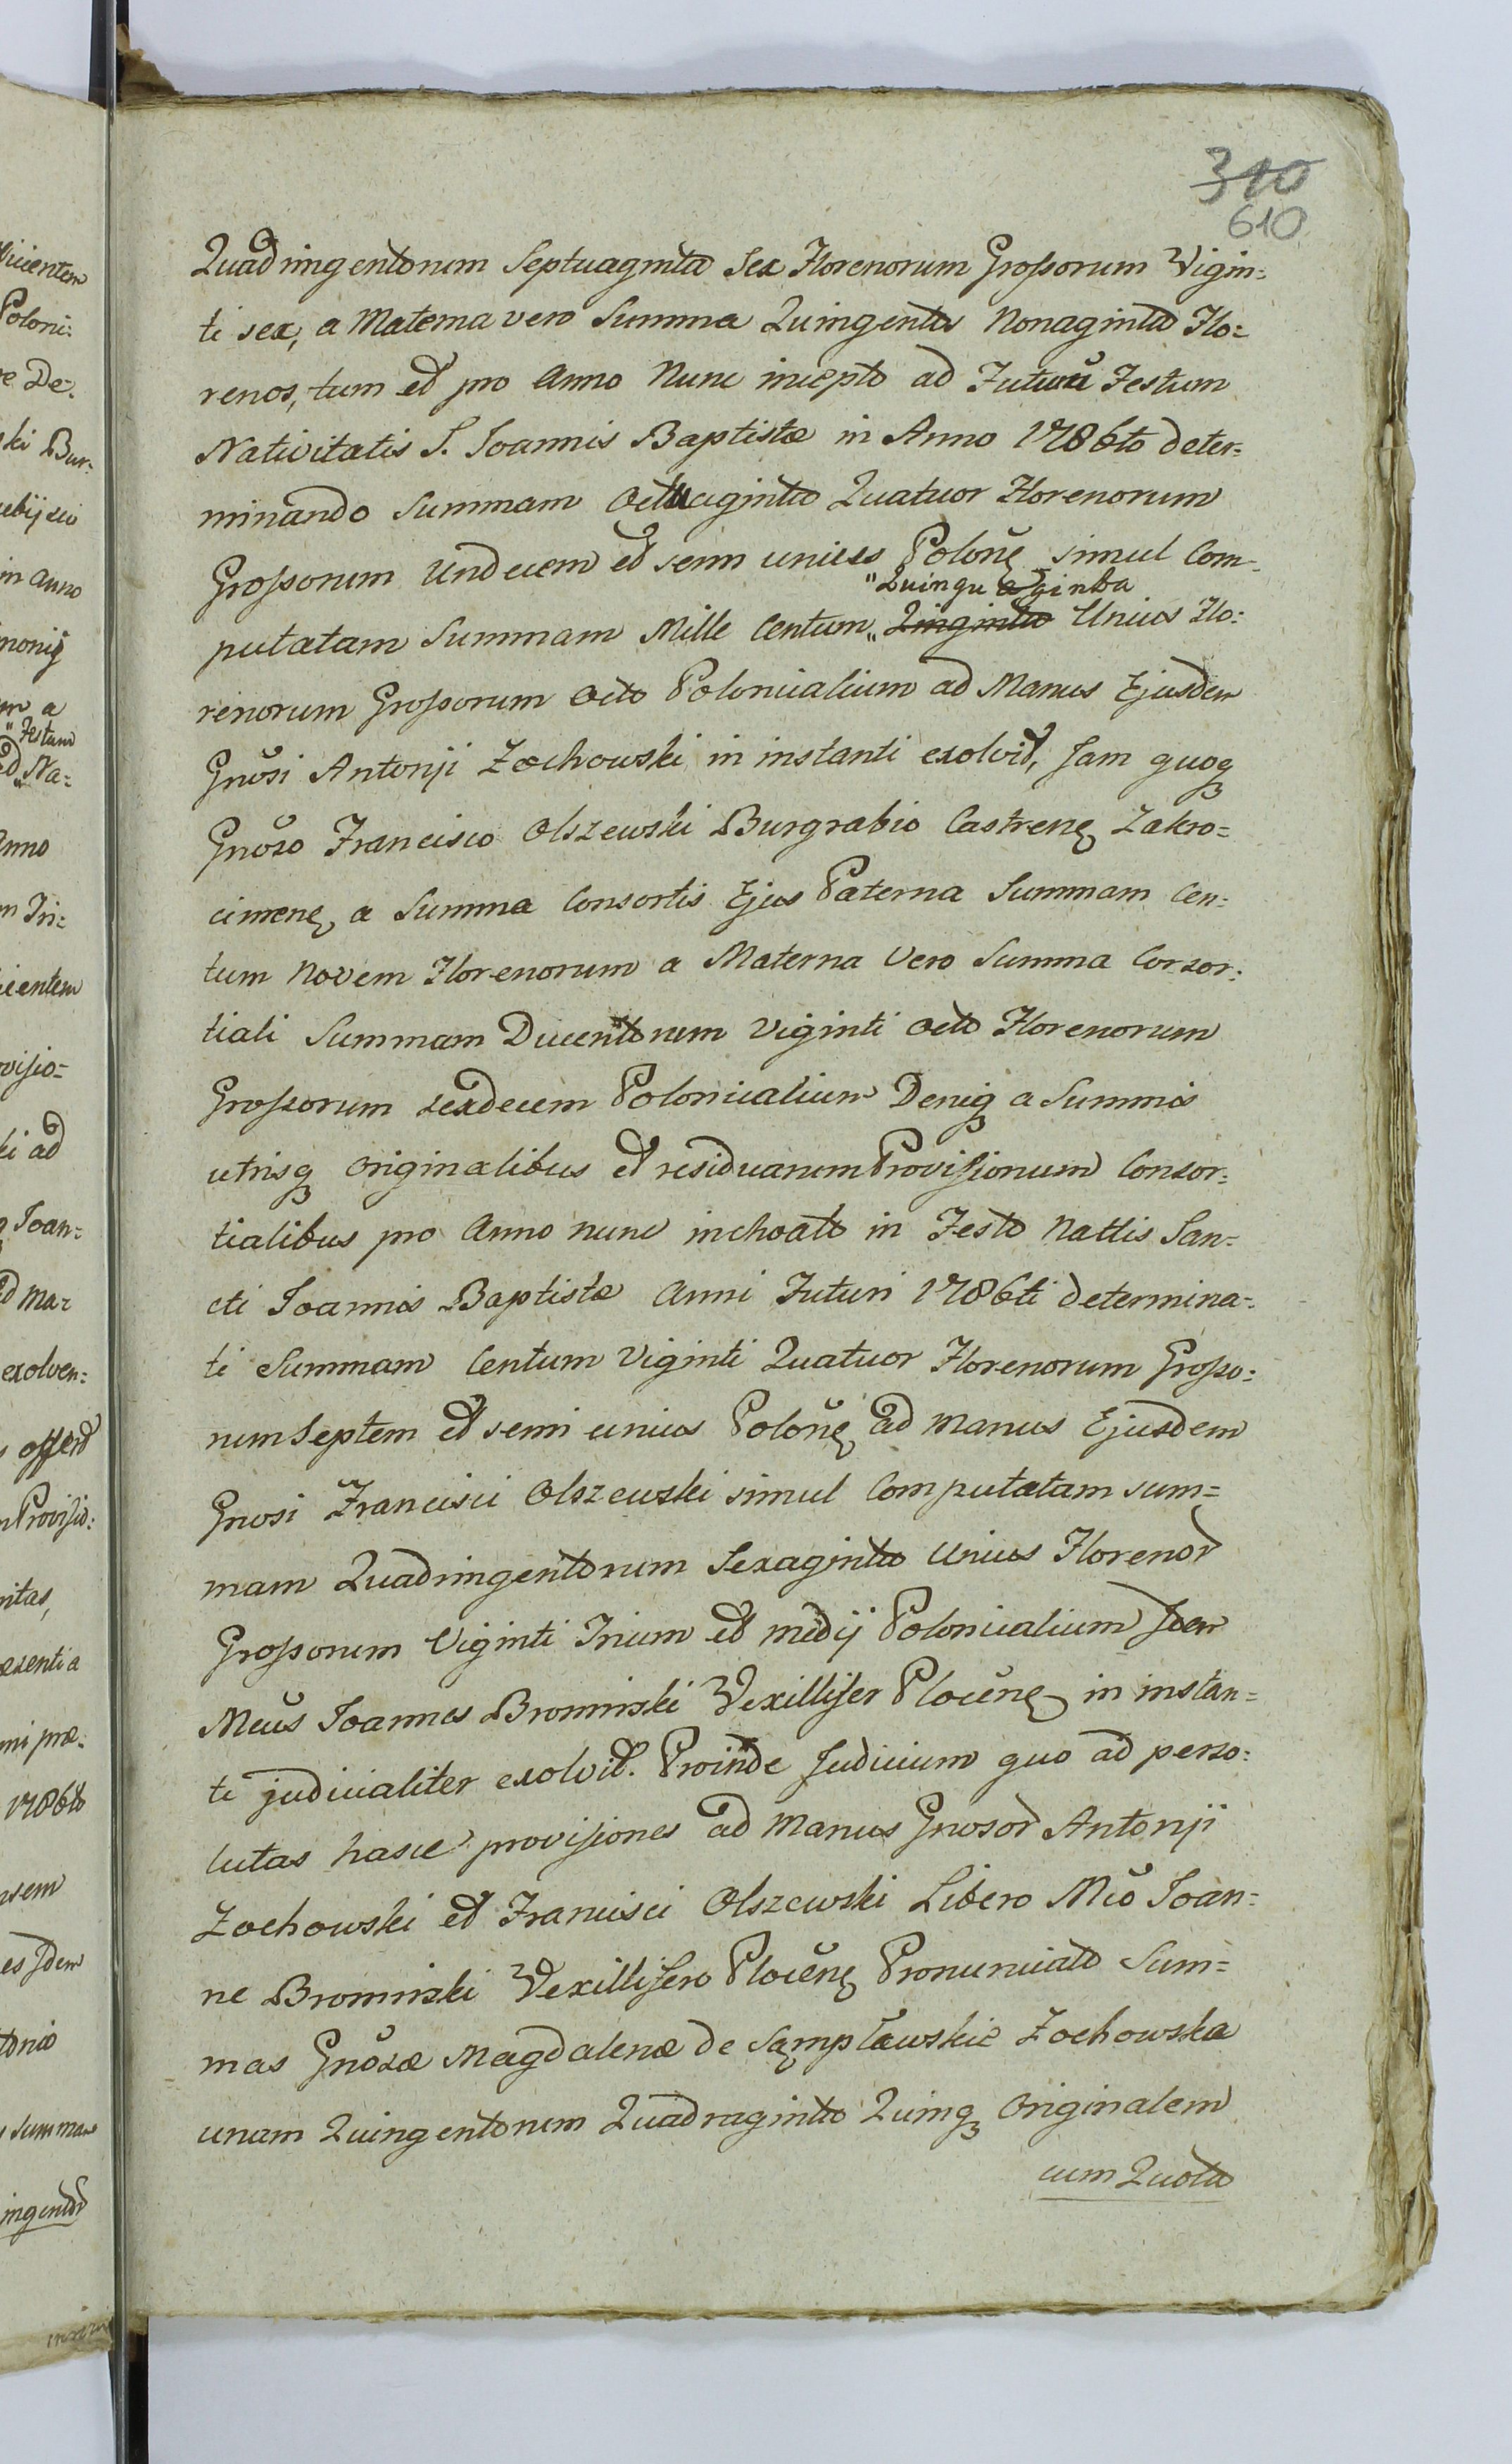 310
610
Quadringentorum Septuaginta Sex Florenorum Grossorum Vigin=
ti sex, a Materna vero Summa Quingentos Nonaginta Flo=
renos, tum et pro Anno Nunc incepto ad Futurū Festum
Nativitatis S. Joannis Baptistæ in Anno 1786to deter=
minando Summam Octuaginta Quatuor Florenorum
Grossorum Undecem et semi unius Polonę simul Com=
"Quinquaginta
putatam Summam Mille Centum „ Unius Flo=
renorum Grossorum Octo Polonicalium ad Manus Ejusdem
Gnōsi Antonji Żochowski in instanti exolvit, Jam quoq
Gnōso Francisco Olszewski Burgrabio Castrenę Zakro=
cimenę a Summa Consortis Ejus Paterna Summam Cen=
tum Novem Florenorum a Materna Vero Summa Consor=
tiali Summam Ducentorum Viginti Octo Florenorum
Grossorum sexdecem Polonicalium Deniq a Summis
utrisq Originalibus et residuarum Provisionum Consor=
tialibus pro Anno nunc inchoato in Festo Nattis San=
cti Joannis Baptistæ Anni Futuri 1786ti determina=
ti Summam Centum Viginti Quatuor Florenorum Grosso=
rum Septem et semi unius Polonę ad Manus Ejusdem
Gnosi Francisci Olszewski simul Computatam sum=
mam Quadringentorum Sexaginta Unius Florenor
Grossorum Viginti Trium et medij Polonicalium Idem
Mcūs Joannes Bromirski Vexillifer Plocēnę in instan=
ti judicialiter exolvit. Proinde Judicium quo ad perso=
lutas hasce provisiones ad Manus Gnosor Antonji
Żochowski et Francisci Olszewski Libero Mcō Joan=
ne Bromirski Vexillifero Plocēnę Pronunciato Sum=
mas Gnōsæ Magdalenæ de Sąmpławskie Żochowska
unam Quingentorum Quadraginta Quinq Originalem
cum Quota